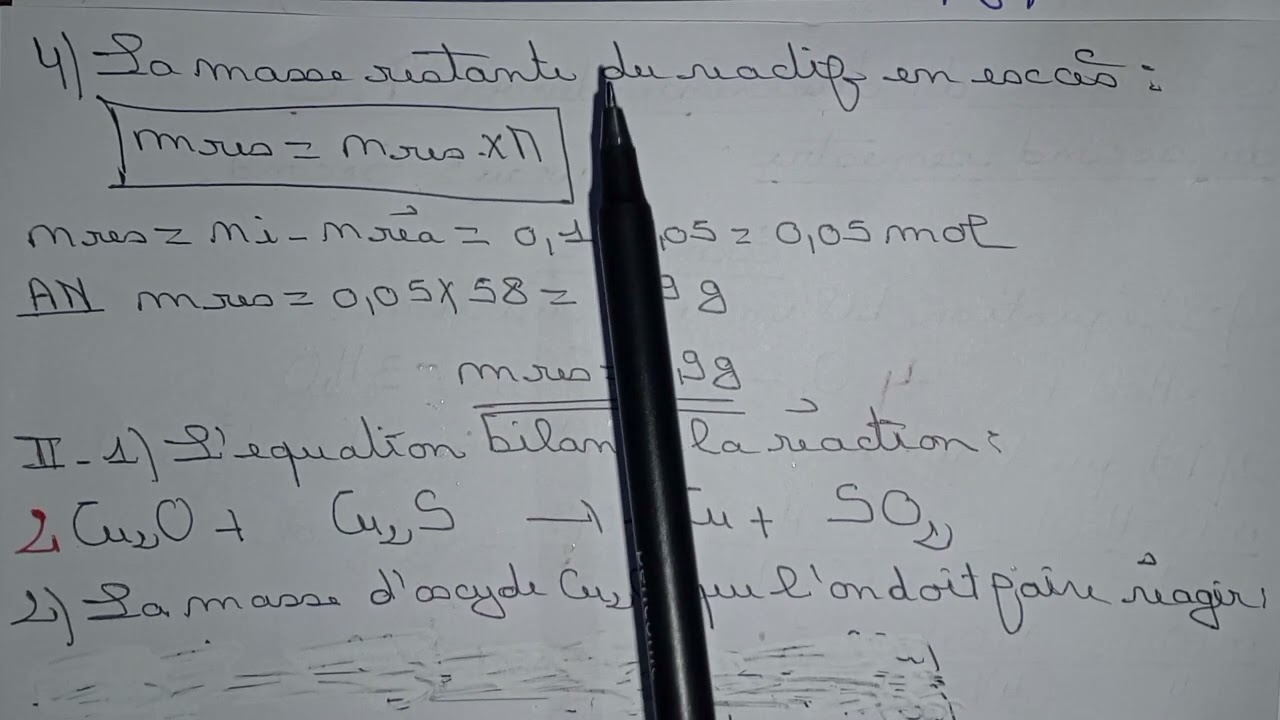 4) La masse restante du reactif en excès :
mres = nres × M
nres = ni - nréa = 0,1 ,05 = 0,05 mol
AN mres = 0,05 × 58 = 9 g
mres = ,9g
II - 1) L'equation bilan la réaction :
2 Cu₂O + Cu₂S → Cu + SO₂
2) La masse d'oxyde Cu₂ que l'on doit faire réagir :